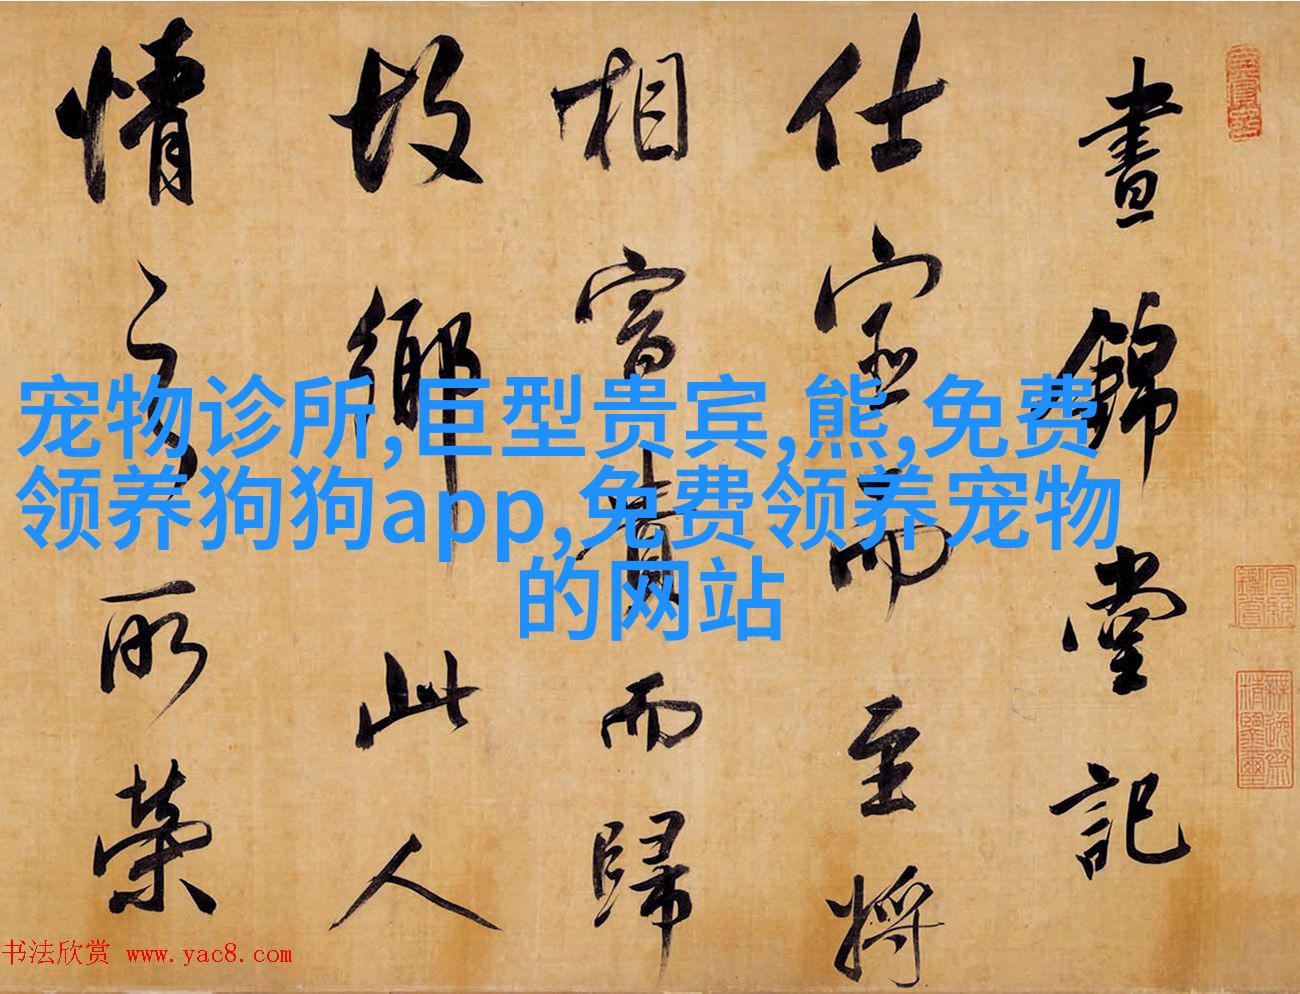 晝錦堂記
仕宦而至將
相富貴而歸
故鄉此人
情之所榮
宠物诊所,巨型贵宾,熊,免费
领养狗狗app,免费领养宠物
的网站
书法欣赏 www.yac8.com